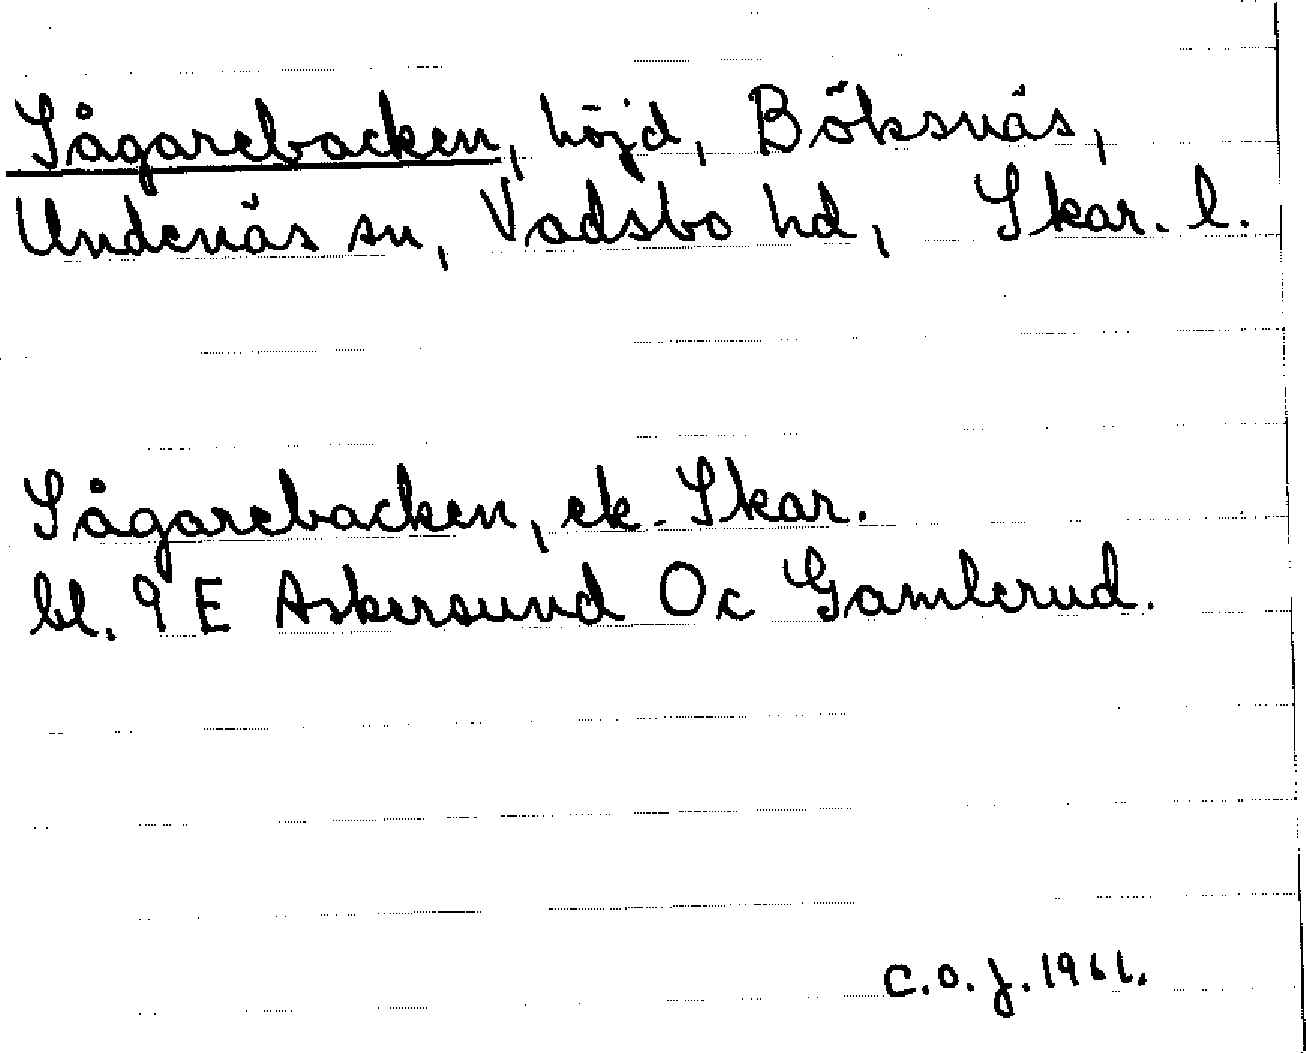 Sågarebacken, höjd, Böksnäs,
Undenäs sn, Vadsbo hd, Skar. l.
Sågarebacken, ek. Skar.
bl. 9 E Askersund Oc Gamlerud.
C.O.J. 1961.